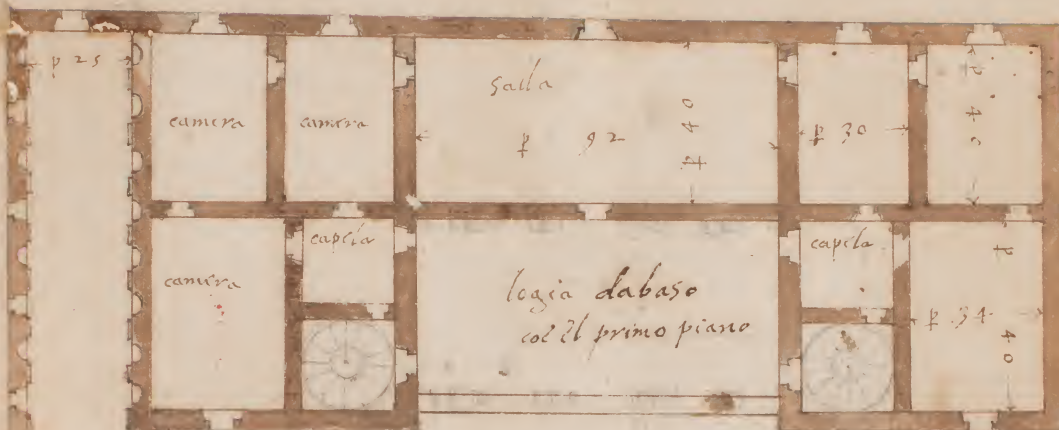 p 25
camera
camera
salla
p 92
p 40
p 30
p 40
capela
capela
camera
logia dabaso
coe il primo piano
p 34
p 40